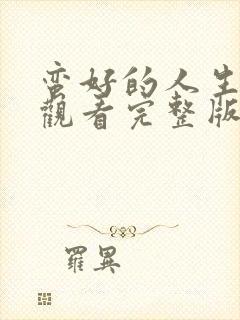 蛮好的人生
觀看完整版
羅異